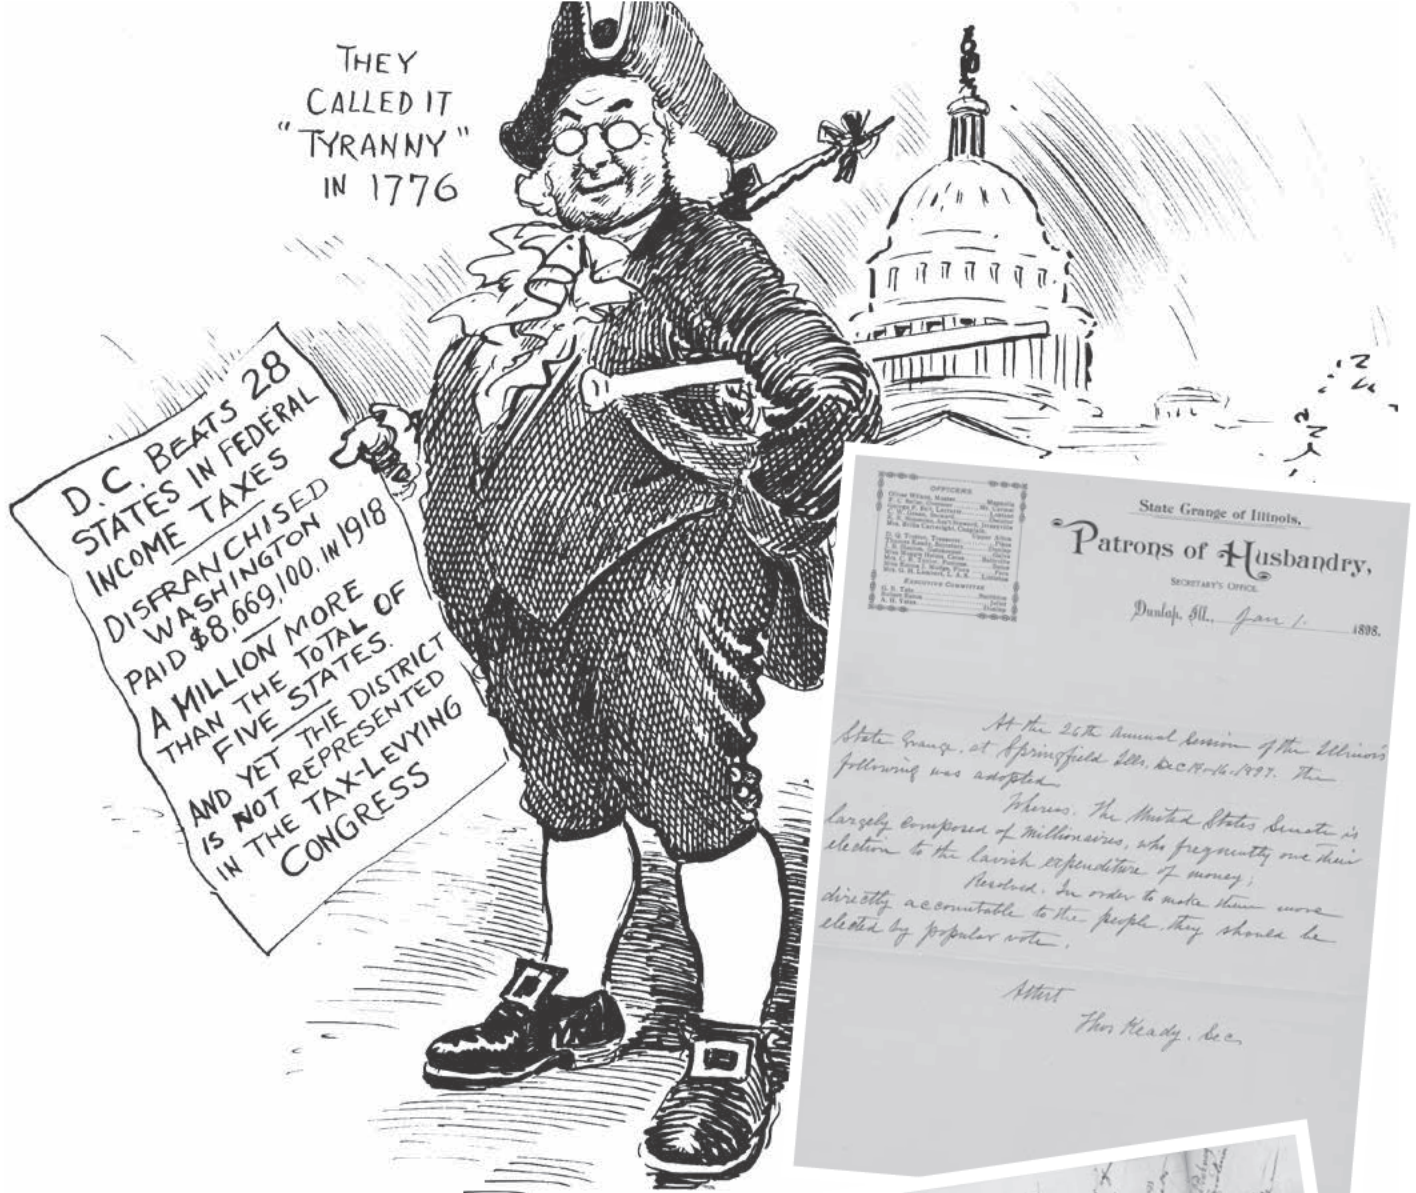 THEY
CALLED IT
"TYRANNY"
IN 1776
D.C. BEATS 28
STATES IN FEDERAL
INCOME TAXES
DISFRANCHISED
WASHINGTON
PAID $8,669,100. IN 1918
A MILLION MORE
THAN THE TOTAL OF
FIVE STATES.
AND YET THE DISTRICT
IS NOT REPRESENTED
IN THE TAX-LEVYING
CONGRESS
OFFICERS
EXECUTIVE COMMITTEE
State Grange of Illinois,
Patrons of Husbandry,
SECRETARY'S OFFICE.
Dunlap, Ill., Jan 1. 1898.
At the 26th Annual Session of the Illinois
State Grange, at Springfield Ills, Dec the
following was adopted
Whereas, the United States Senate is
largely composed of millionaires, who frequently owe their
election to the lavish expenditure of money;
Resolved. In order to make them more
directly accountable to the people, they should be
elected by popular vote.
Attest
Thos Keady, Sec